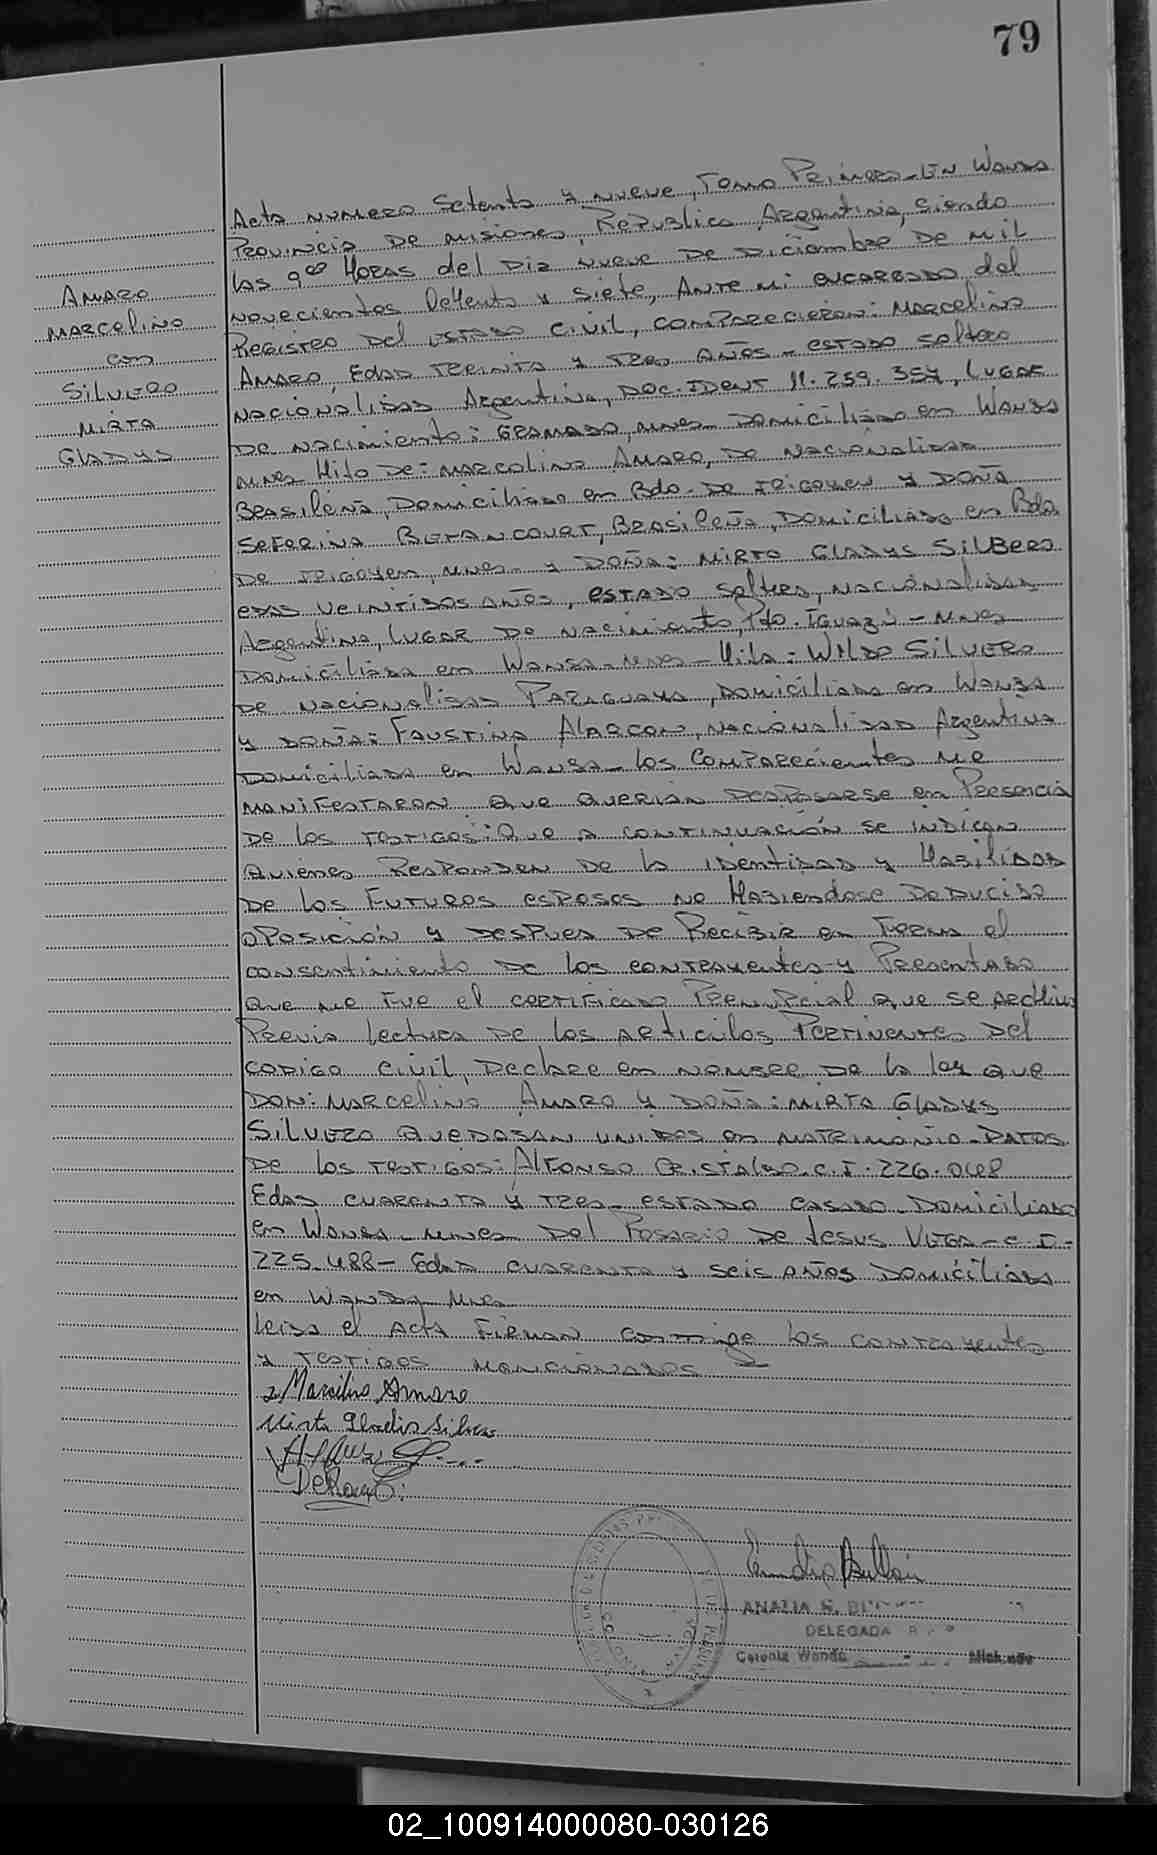 79
AMARO
MARCELINO
CON
SILVERO
MIRTA
GLADYS
Acta NUMERO Setenta y nueve, Tomo Primero - En Wanda
Provincia De Misiones, Republica Argentina, Siendo
las 9 Horas del Dia nueve De Diciembre De Mil
novecientos Ochenta y Siete, Ante mi encargado del
Registro Del Estado Civil, comparecieron: Marcelino
Amaro, Edad Treinta y Tres Años - estado soltero
nacionalidad Argentina, Doc. Ident 11.259.354, Lugar
De nacimiento: Gramado, Mnes - Domiciliado en Wanda
Mnes Hijo De: Marcolino Amaro, De nacionalidad
Brasileña, Domiciliado en Bdo. De Irigoyen y Doña
Seferina Betancourt, Brasileña, Domiciliada en Bdo.
De Irigoyen, Mnes - y Doña: Mirta Gladys Silbero
edad Veintidos años, estado soltera, nacionalidad
Argentina, Lugar De nacimiento, Pto. Iguazú - Mnes
Domiciliada en Wanda - Mnes - Hija: Wildo Silvero
De nacionalidad Paraguaya, Domiciliado en Wanda
y Doña: Faustina Alarcon, nacionalidad Argentina
Domiciliada en Wanda - los comparecientes me
manifestaron que querian desposarse en Presencia
De los testigos: que a continuación se indican
quienes Responden De la identidad y Habilidad
De los Futuros esposos no Habiendose Deducido
oposición y despues de Recibir en Forma el
consentimiento De los contrayentes y Presentado
que me fue el certificado Prenupcial que se archiva
Previa lectura De los articulos Pertinentes Del
codigo civil, Declare en nombre De la ley que
Don: Marcelino Amaro y Doña: Mirta Gladys
Silvero quedaban unidos en matrimonio - Datos
De los testigos: Alfonso Cristaldo. C.I. 226.048
Edad cuarenta y tres - estado casado - Domiciliado
en Wanda - Mnes - Del Rosario De Jesus Vega - C.I. -
225.488 - Edad cuarenta y seis años Domiciliada
en Wanda Mnes
leida el Acta Firman conmigo los contrayentes
y testigos mencionados
Marcelino Amaro
Mirta Gladis Silvero
ANALIA
DELEGADA
Colonia Wanda Misiones
02_100914000080-030126